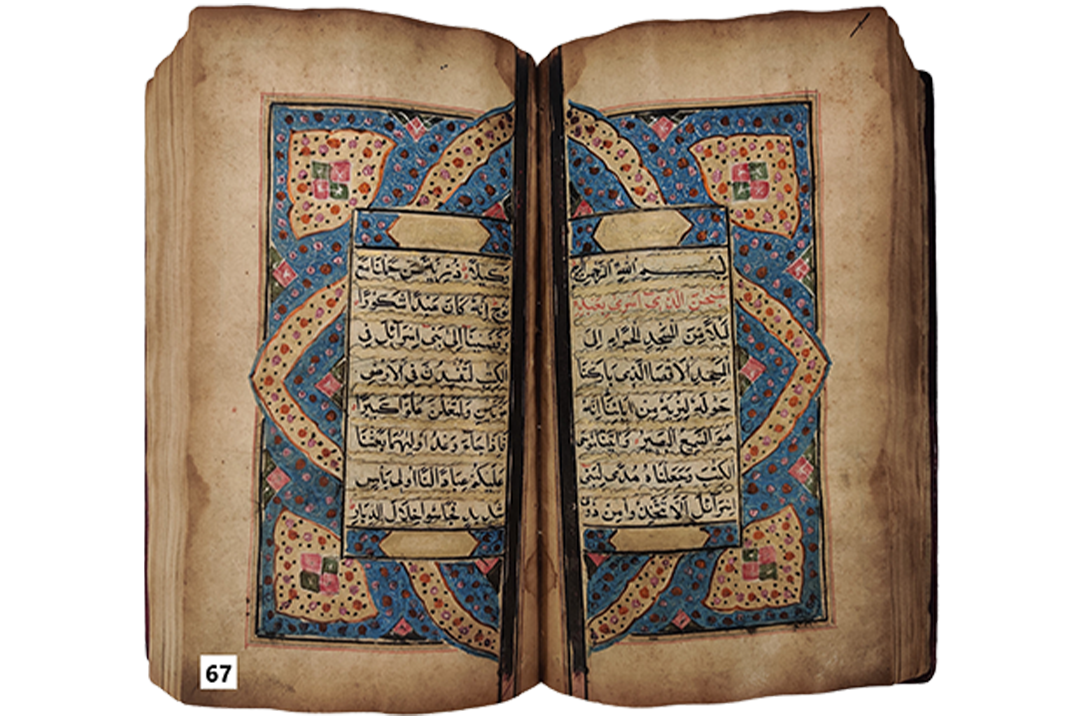 بسم الله الرحمن الرحيم
سبحن الذي اسرى بعبده
ليلا من المسجد الحرام الى
المسجد الاقصا الذي باركنا
حوله لنريه من ايتنا انه
هو السميع البصير واتينا موسى
الكتب وجعلناه هدى لبني
اسرائل الا تتخذوا من دوني
وكيلا ذرية من حملنا مع
نوح انه كان عبدا شكورا
وقضينا الى بني اسرائل في
الكتب لتفسدن في الارض
مرتين ولتعلن علوا كبيرا
فاذا جاء وعد اوليهما بعثنا
عليكم عبادا لنا اولي باس
شديد فجاسوا خلال الديار
67